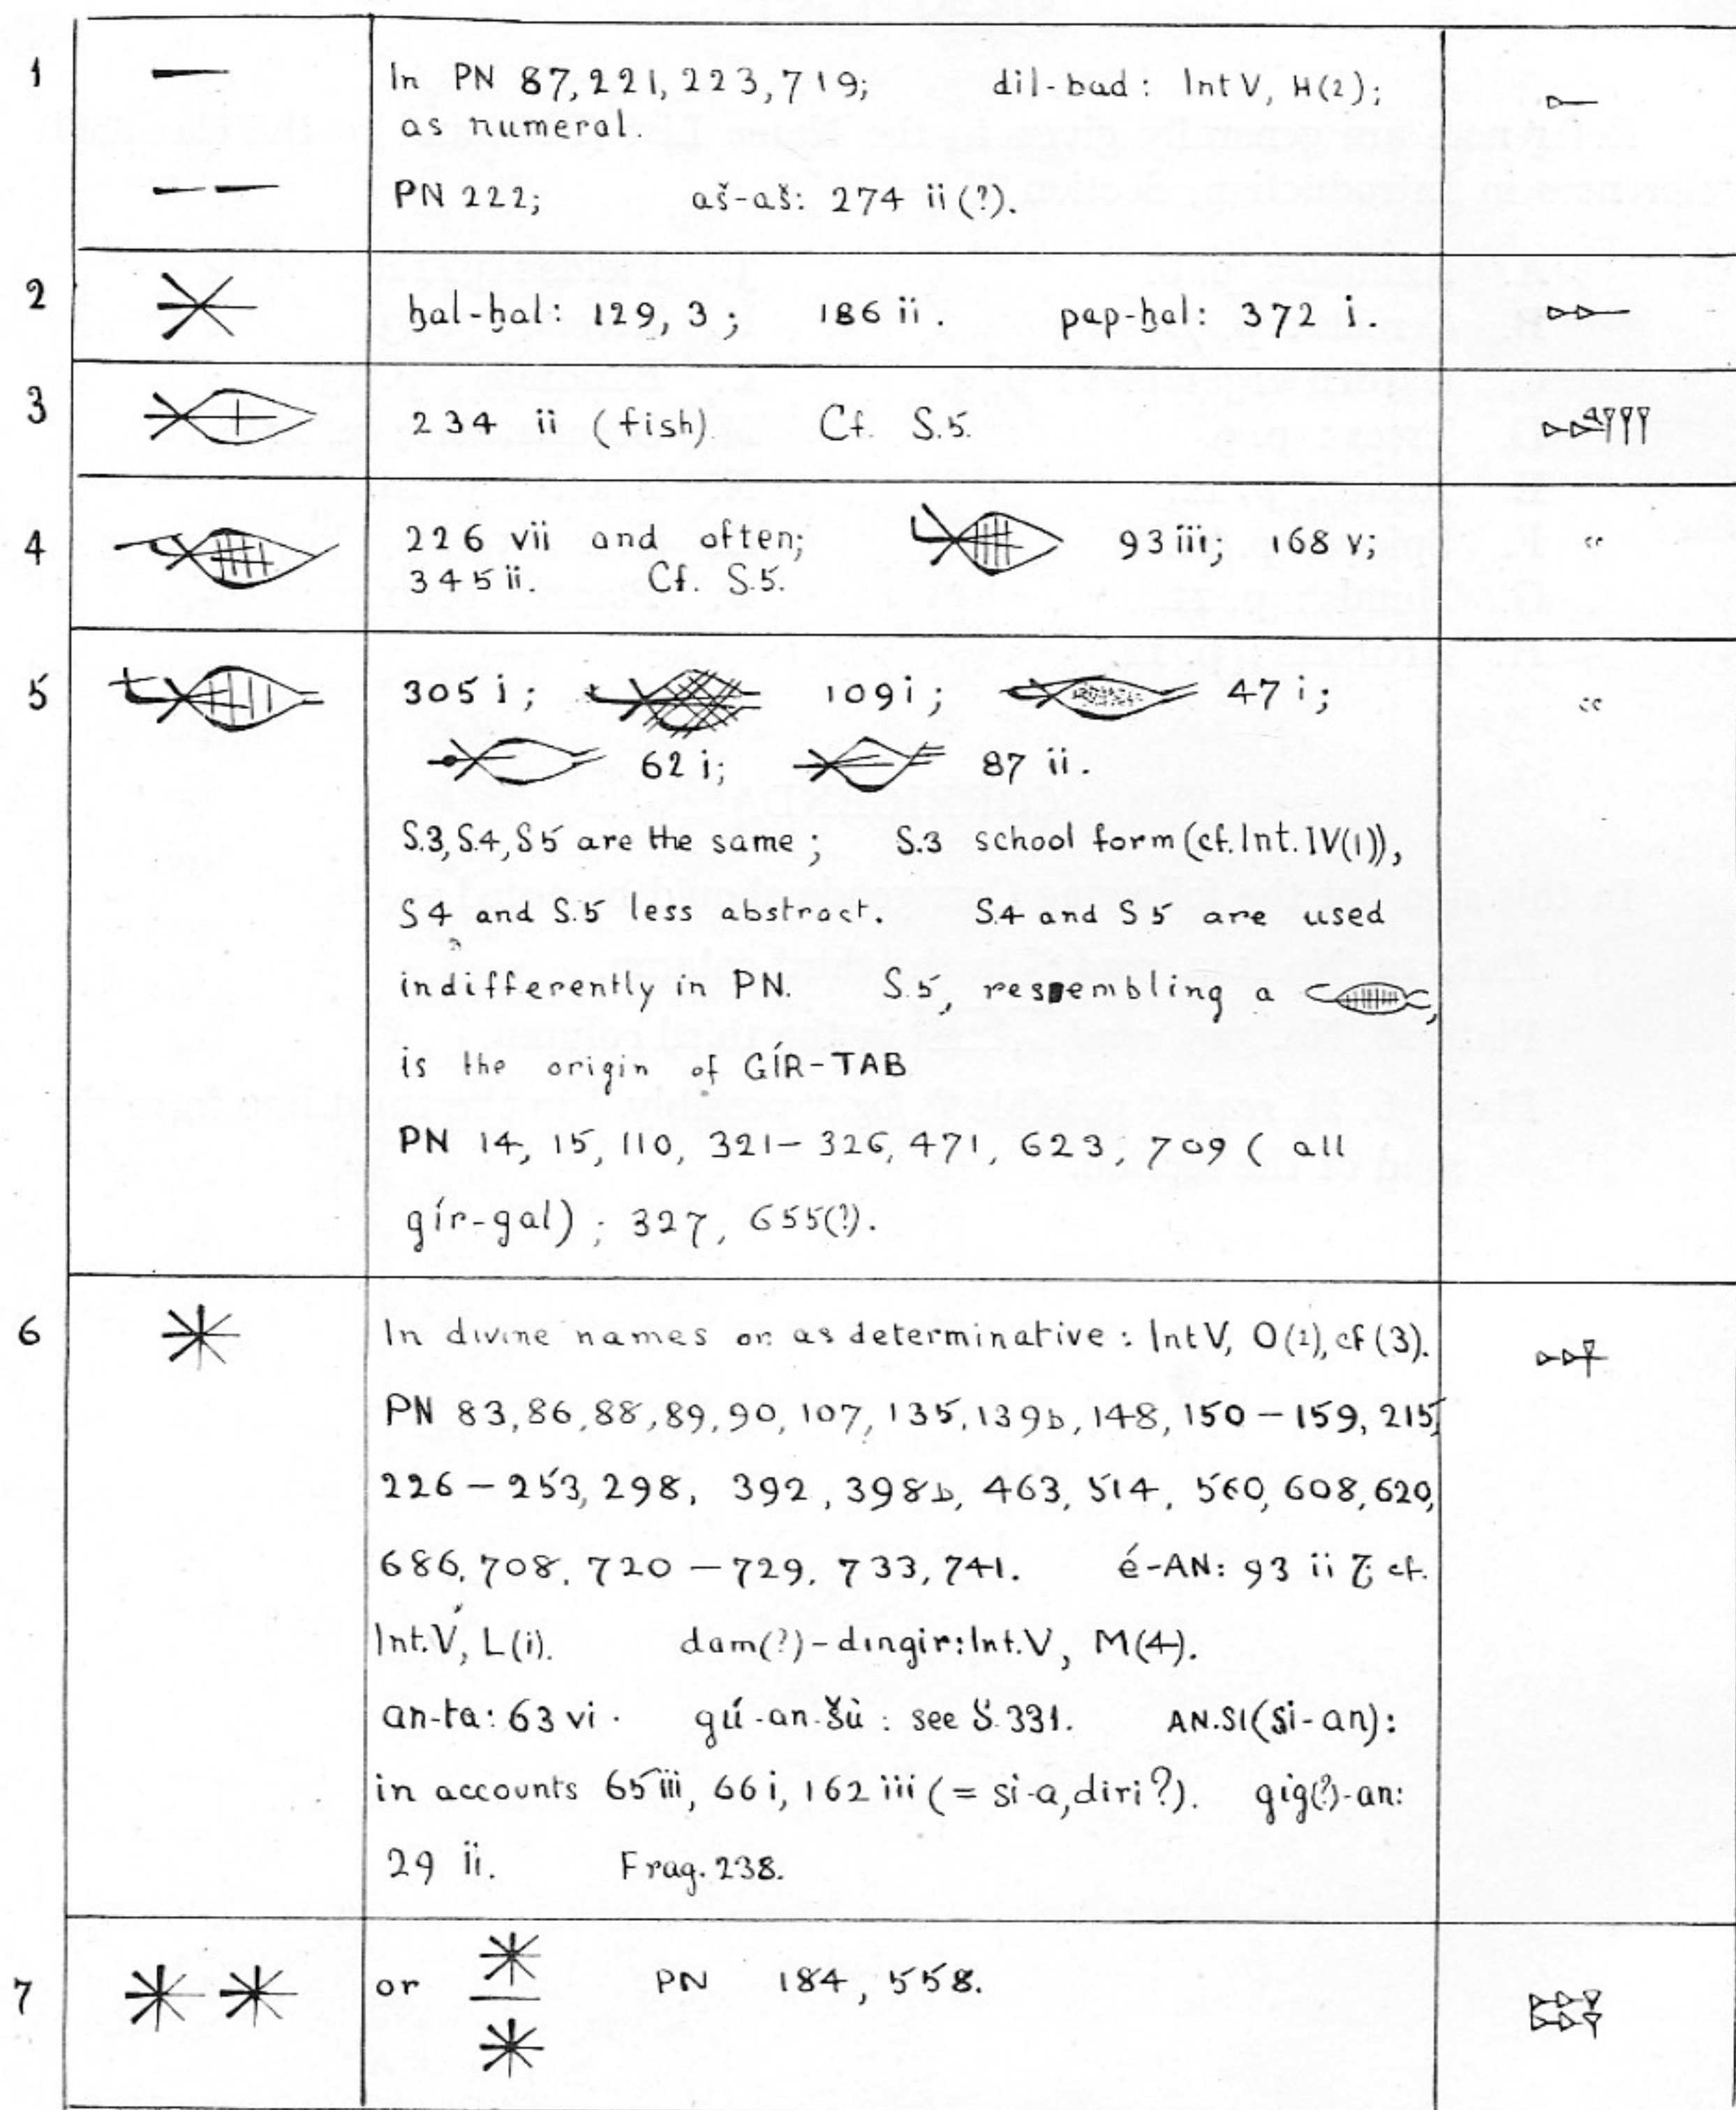 1
In PN 87, 221, 223, 719; dil-bad: Int V, H(2);
as numeral.
PN 222; aš-aš: 274 ii (?).
2
ḫal-ḫal: 129, 3; 186 ii. pap-ḫal: 372 i.
3
234 ii (fish) Cf. S.5.
4
226 vii and often; 93 iii; 168 v;
345 ii. Cf. S.5.
5
305 i; 109 i; 47 i;
62 i; 87 ii.
S.3, S.4, S5 are the same; S.3 school form (cf. Int. IV(1)),
S4 and S.5 less abstract. S.4 and S5 are used
indifferently in PN. S.5, resembling a ,
is the origin of GÍR-TAB
PN 14, 15, 110, 321–326, 471, 623, 709 ( all
gír-gal); 327, 655(?).
6
In divine names or as determinative: Int V, O(2), cf (3).
PN 83, 86, 88, 89, 90, 107, 135, 139b, 148, 150–159, 215,
226–253, 298, 392, 398b, 463, 514, 560, 608, 620,
686, 708, 720–729, 733, 741. é-AN: 93 ii 7, cf.
Int. V, L(i). dam(?)-dingir: Int. V, M(4).
an-ta: 63 vi. gú-an-šù: see S.331. AN.SI (si-an):
in accounts 65 iii, 66 i, 162 iii (= si-a, diri?). gig(?)-an:
29 ii. Frag. 238.
7
or PN 184, 558.